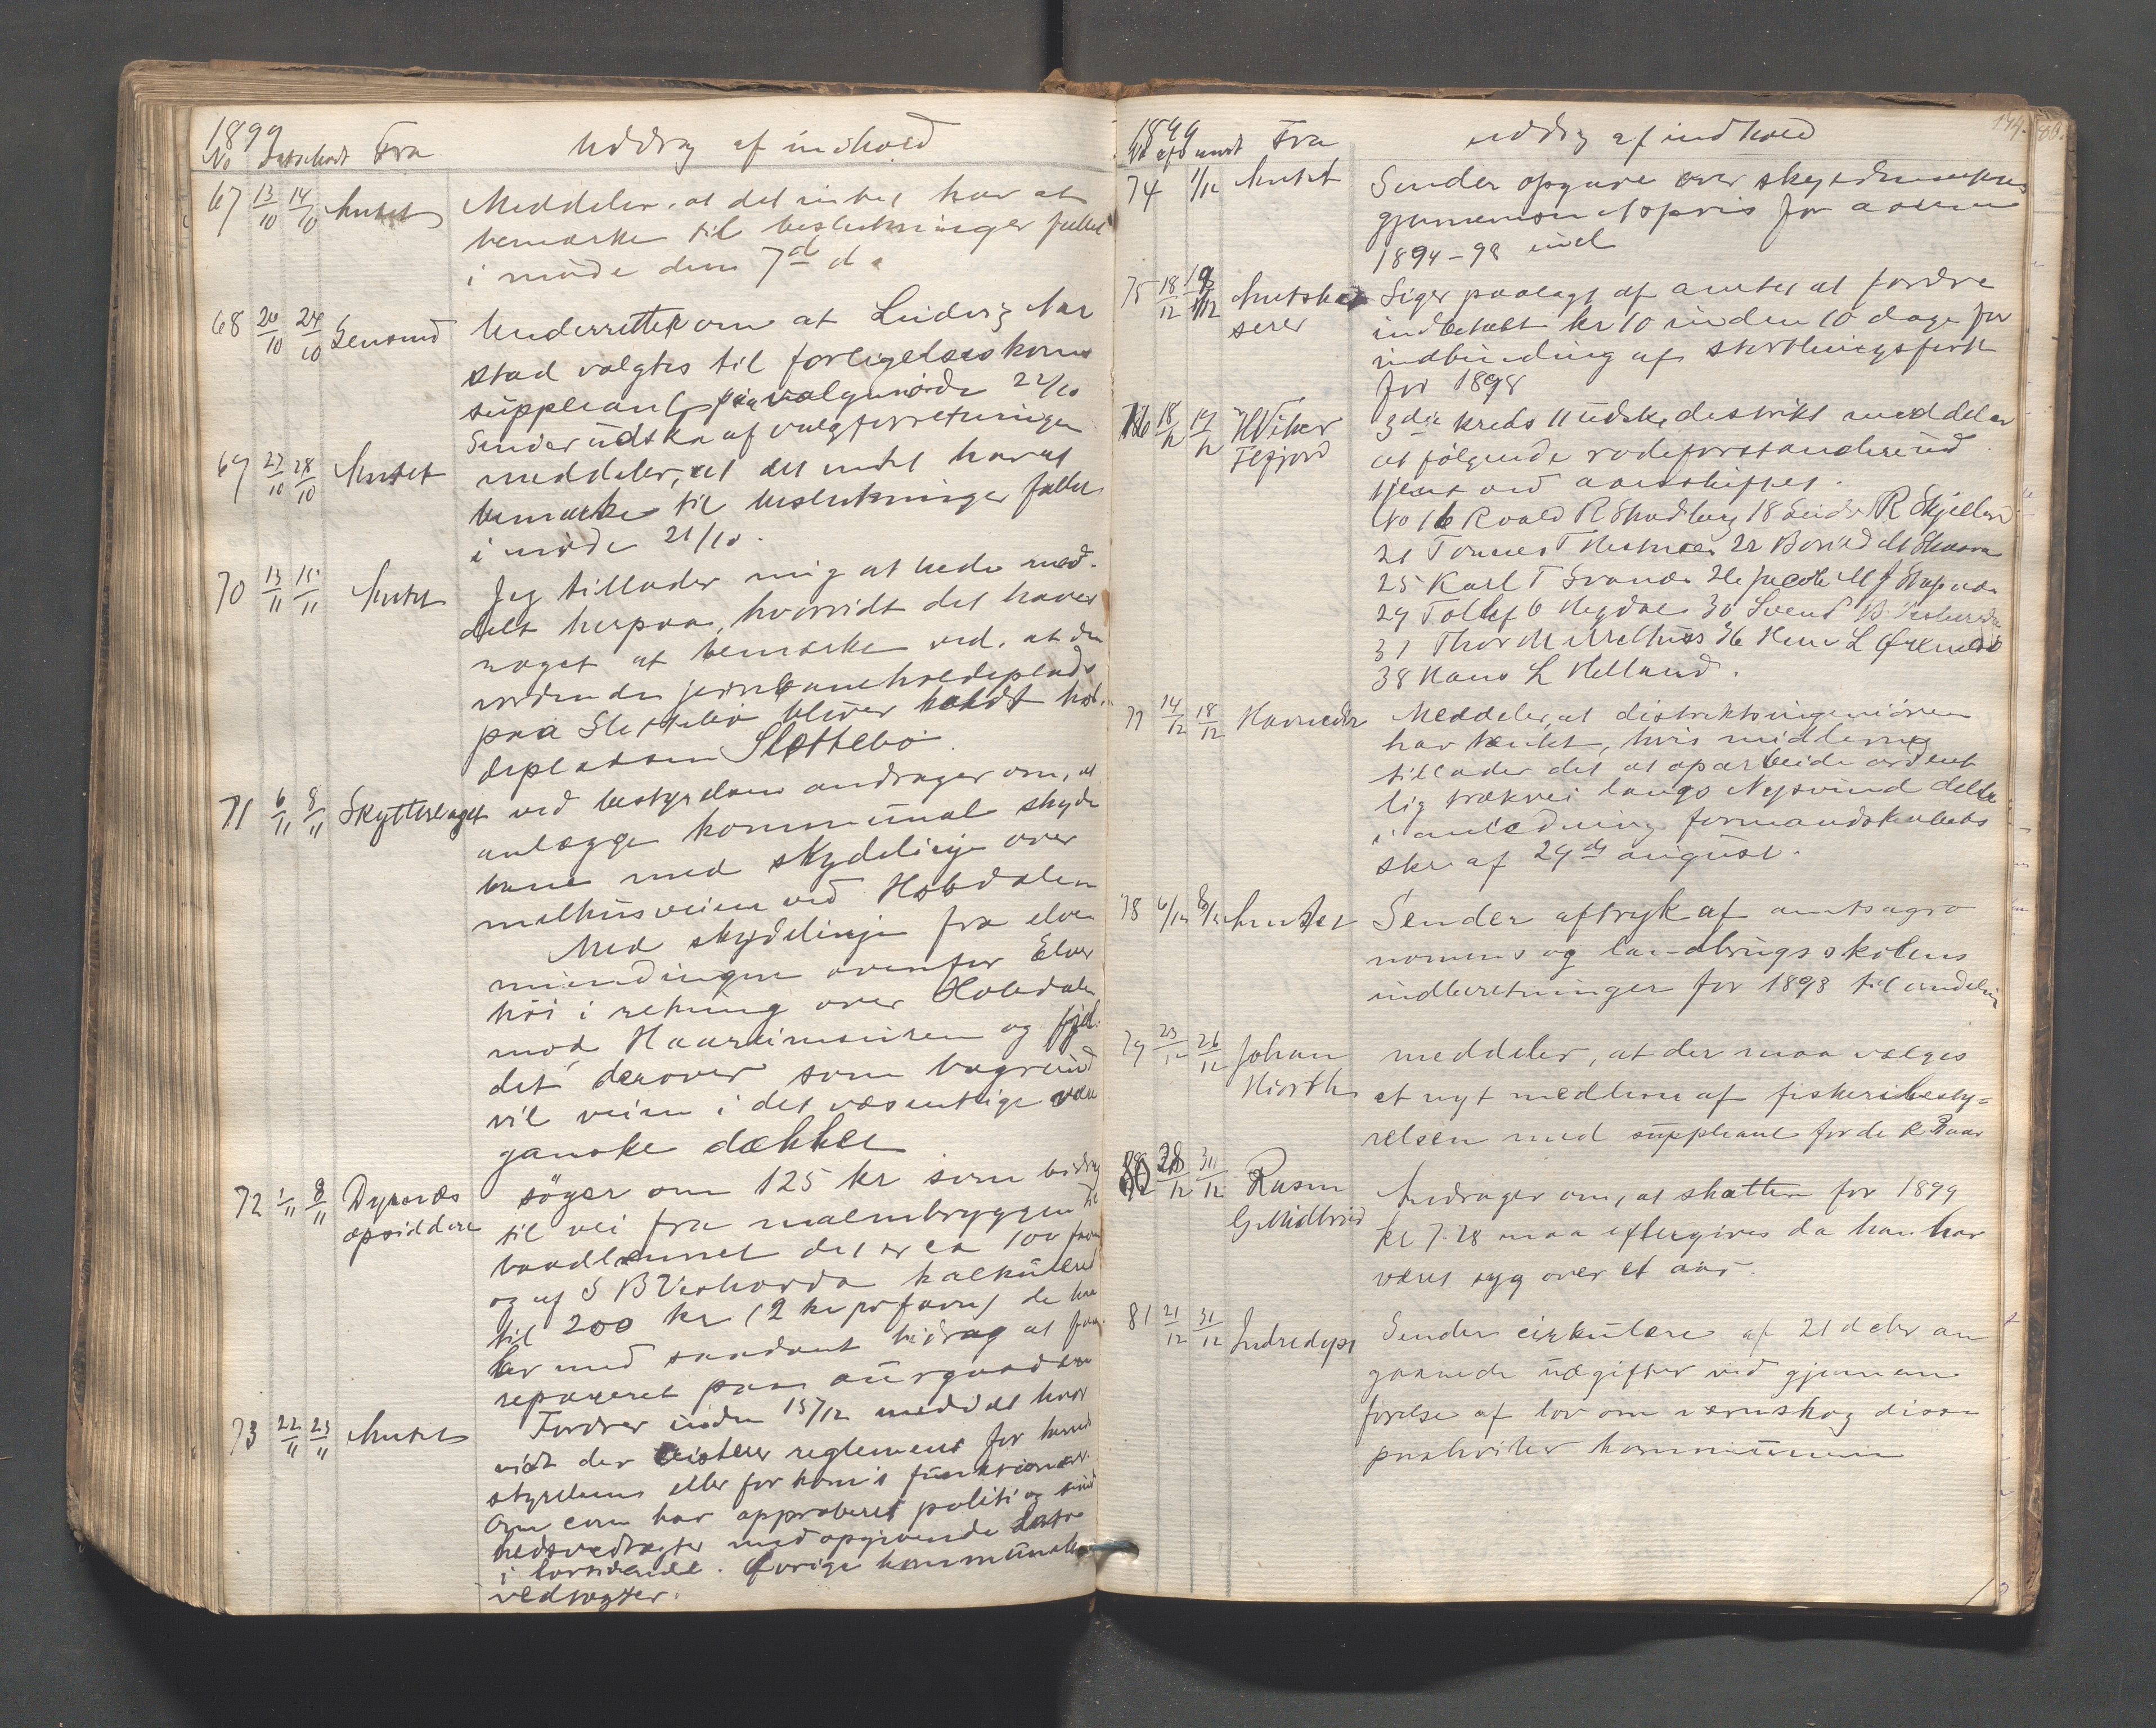 1899
No Fra Uddrag af indhold
67 13/10 14/10 Amtet Meddeler, at det intet har at
bemærke til beslutninger fattet
i møde den 7de d.
68 20/10 24/10 Lensmd Underretter om at Ludvig Aar
stad valgtes til forligelseskoms
suppleant paa valgmøde 22/10
Sender udskr af valgforretningen
69 27/10 28/10 Amtet meddeler, at det intet har at
bemærke til beslutninger fattet
i møde 21/10.
70 13/11 15/11 Amtet Jeg tillader mig at bede med-
delt herpaa, hvorvidt det haves
noget at bemærke ved, at den
vordende jernbaneholdeplads
paa Slettebø bliver kaldt hol-
depladsen Slettebø.
71 6/11 8/11 Skytterlaget ved bestyrelsen andrager om, at
anlægge kommunal skyde
bane med skydelinje over
melhusveien ved Hobdalen
Med skydelinje fra elve
mundingen ovenfor Elve
høi i retning over Hobdalen
mod Haareimsuren og fjel-
det derover som bagrund
vil veien i det væsentlige være
ganske dækket
72 1/11 8/11 Dyrnæs opsiddere søger om 125 kr som bidrag
til vei fra malmbryggen til
baadlænnet det er ca 100 favn
og af S B Veshovda kalkuleret
til 200 kr (2 kr pr favn) de ha
ber med saadant bidrag at faa
repareret paa
73 22/11 23/11 Amtet Fordrer inden 15/12 meddelt hvor
vidt der existerer reglement for herreds
styrelsens eller for kom's funktionær.
Om com har approberet politi og sund
hedsvedtægter med opgivende dato
i tilfælde. Øvrige kommunale
vedtægter.
1899 144.
Fra uddrag af indhold
74 1/12 Amtet Sender opgave over skyedmarkens
gjennemsnitspris for aarene
1894-98 incl
75 18/12 19/12 Amtskas serer Siger paalagt af amtet at fordre
indbetalt kr 10 inden 10 dage for
indbinding af storthingsforh
for 1898
76 18/12 19/12 3die kreds 11 udskr distrikt meddeler
at følgende rodeforstandere ud
tjent ved aarsskiftet.
No 16 Roald R Skadberg 18 R Skjelbred
21 Tønnes T 22
25 Karl T Svanes Jacob M J
29 Tollef O Hegdal 30 Svend B
31 Thor M Melhus 36 L
38 Hans L Helland.
77 14/12 18/12 Havnedir Meddeler, at distriktsingeniøren
har tænkt, hvis midlerne
tillader det at oparbeide ordent
lig trækvei langs Nysund dette
i anledning formandskabets
skr af 29de august.
78 6/12 8/12 Amtet Sender aftryk af amtsagro
nomens og landbrugsskolens
indberetninger for 1898 til uddeling
79 23/12 26/12 Johan Hiorth meddeler, at der maa vælges
et nyt medlem af fiskeribesty-
relsen med suppleant for de 2 aar
80 28/12 30/12 Rasm G Midbrød Andrager om, at skatten for 1899
kr 7.28 maa eftergives da han har
været syg over et aar.
81 21/12 31/12 Indredept Sender cirkulære af 21 debr an
gaaende udgifter ved gjennem
førelse af lov om værnskog disse
paahviler kommunen